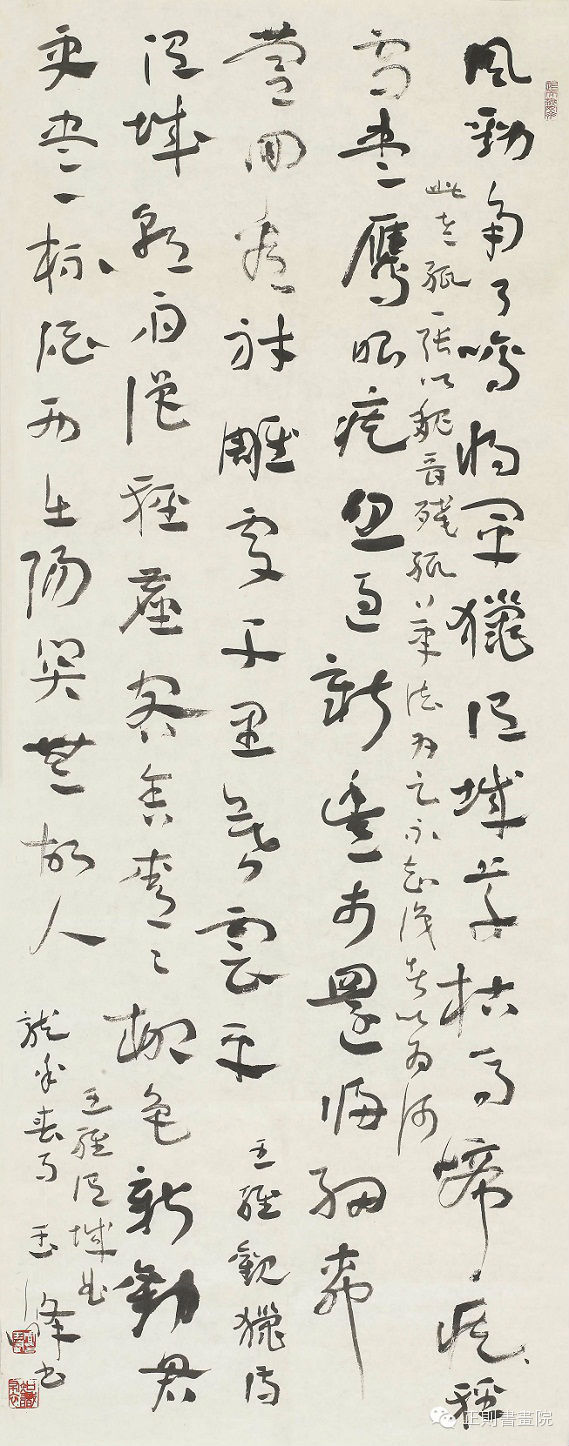 風勁角弓鳴將軍獵渭城草枯馬啼疾輕
此老紙一張以魏晉殘紙筆法為之不知識者以為何
雪盡鷹眼疾忽過新豐市還歸細柳
營回看射雕處千里暮雲平 王維觀獵詩
渭城朝雨浥輕塵客舍青〻柳色新勸君
更盡一杯酒西出陽関無故人
王維渭城曲
龍年春月玉峰書
正則書畫院